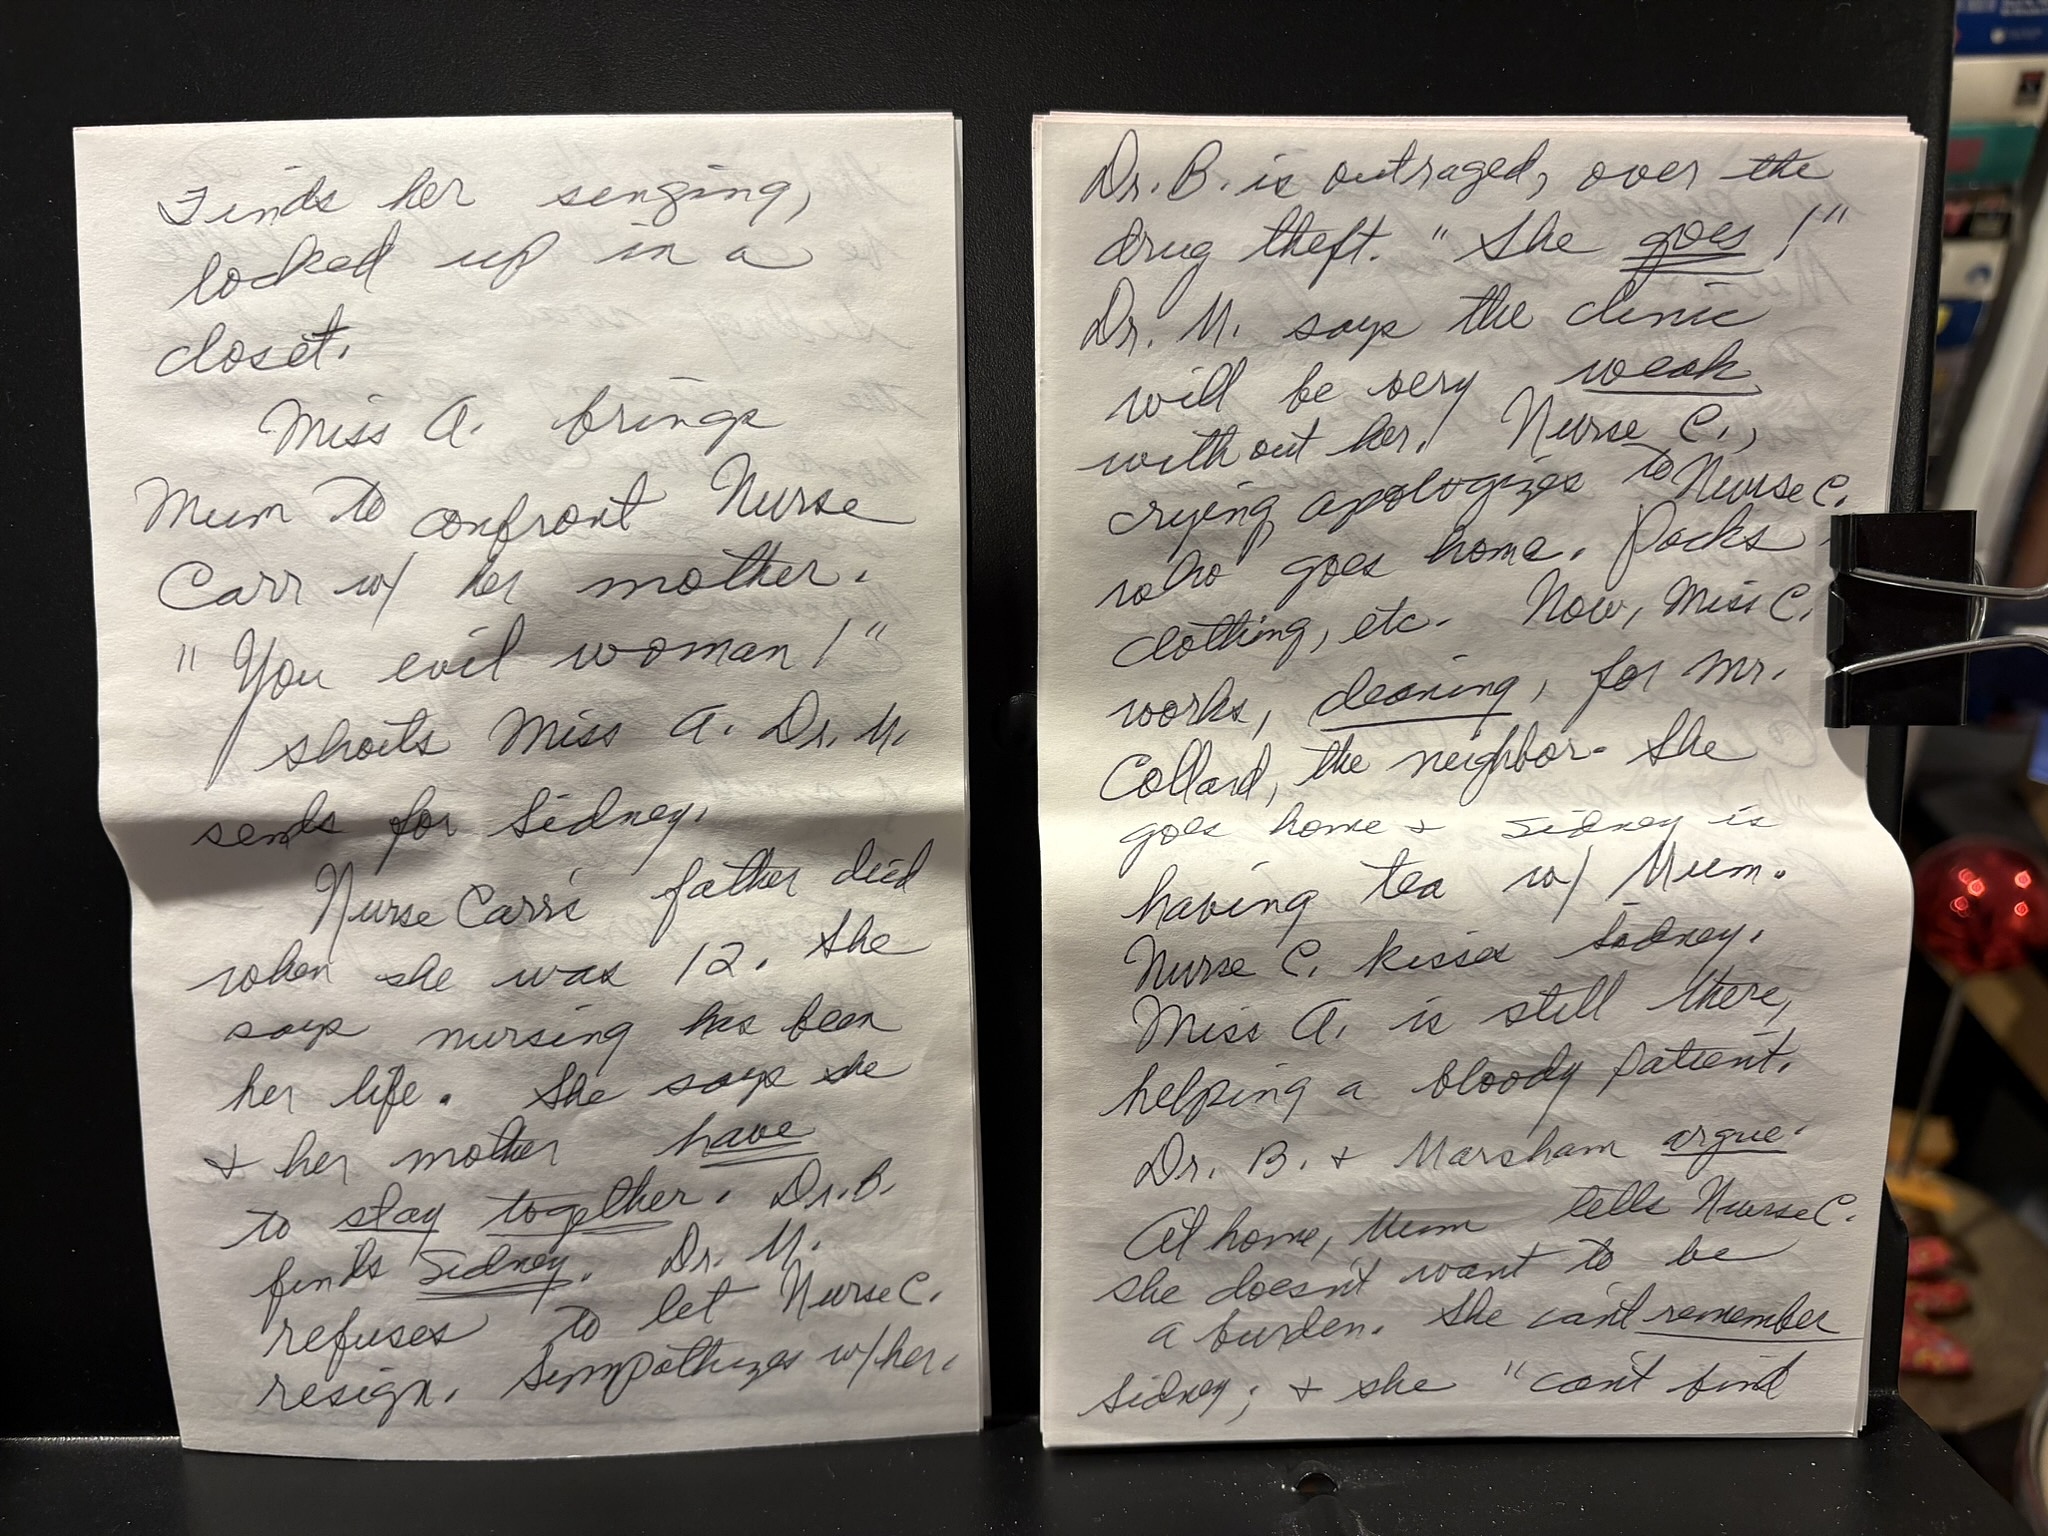 Finds her singing,
locked up in a
closet.
Miss A. brings
Mum to confront Nurse
Carr w/ her mother.
"You evil woman!"
shouts Miss A. Dr. M.
sends for Sidney.
Nurse Carr's father died
when she was 12. She
says nursing has been
her life. She says she
& her mother have
to stay together. Dr. B.
finds Sidney. Dr. M.
refuses to let Nurse C.
resign. Sympathizes w/ her.
Dr. B. is outraged, over the
drug theft. "She goes!"
Dr. M. says the clinic
will be very weak
without her! Nurse C.,
crying, apologizes to Nurse C.
who goes home. Packs
clothing, etc. Now, Miss C.
works, cleaning, for Mr.
Collard, the neighbor. She
goes home & Sidney is
having tea w/ Mum.
Nurse C. kisses Sidney.
Miss A. is still there,
helping a bloody patient.
Dr. B. & Marsham argue.
At home, Mum tells Nurse C.
she doesn't want to be
a burden. She can't remember
Sidney; & she "can't find